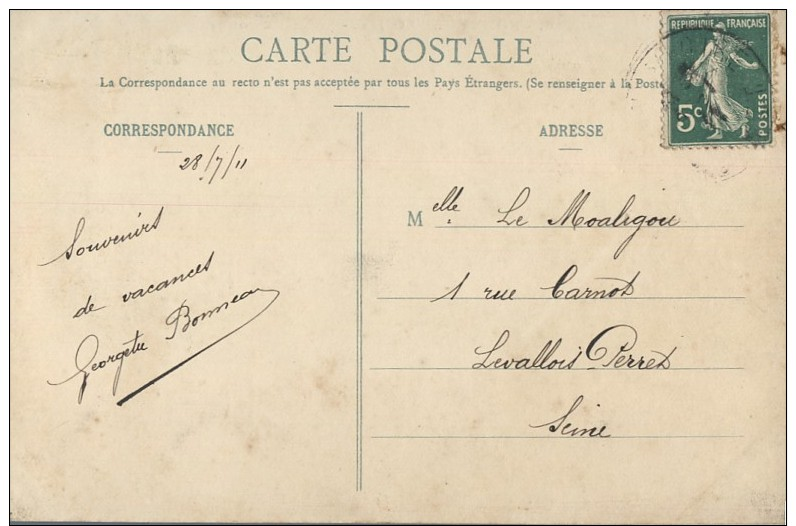 CARTE POSTALE
La Correspondance au recto n'est pas acceptée par tous les Pays Étrangers. (Se renseigner à la Poste
RÉPUBLIQUE FRANÇAISE
5c
POSTES
CORRESPONDANCE
28/7/11
Souvenirs
de vacances
Georgette Bonneau
ADRESSE
Melle Le Moaligou
1 rue Carnot
Levallois-Perret
Seine